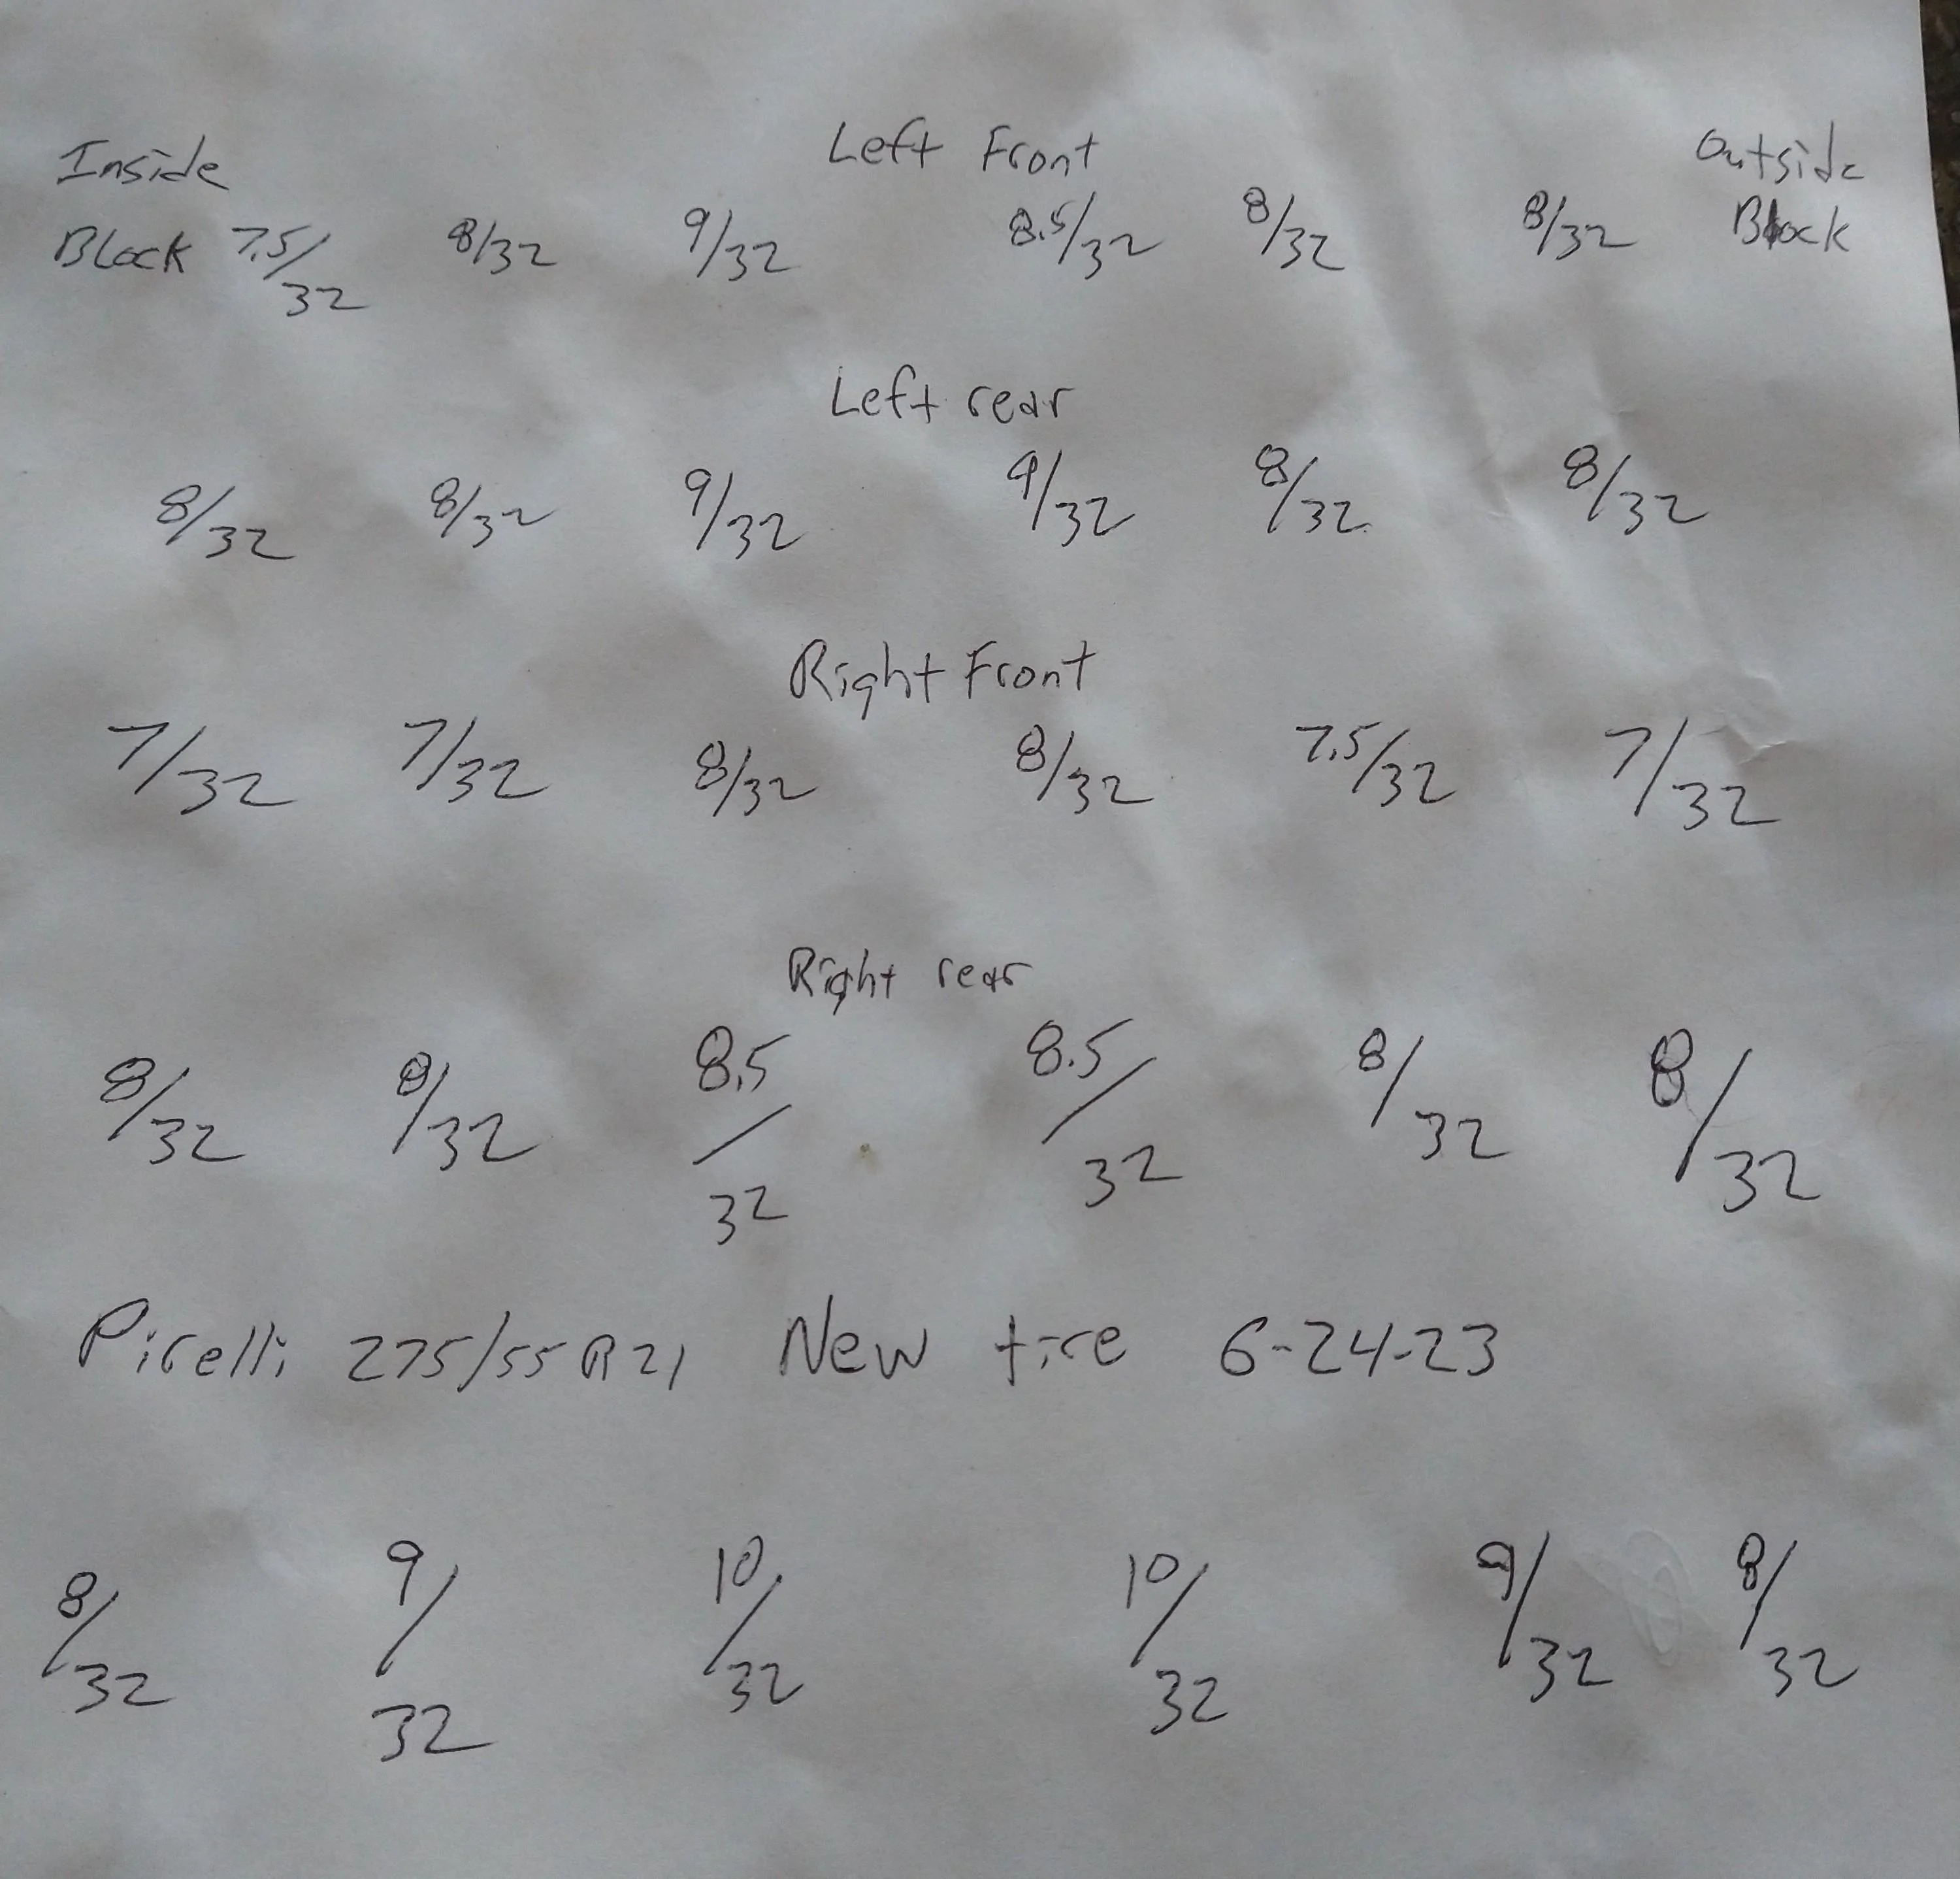 Left Front
Inside Outside
Block 7.5/32 8/32 9/32 8.5/32 8/32 8/32 Block
Left rear
8/32 8/32 9/32 9/32 8/32 8/32
Right Front
7/32 7/32 8/32 8/32 7.5/32 7/32
Right rear
8/32 8/32 8.5/32 8.5/32 8/32 8/32
Pirelli 275/55 R 21 New tire 6-24-23
8/32 9/32 10/32 10/32 9/32 8/32